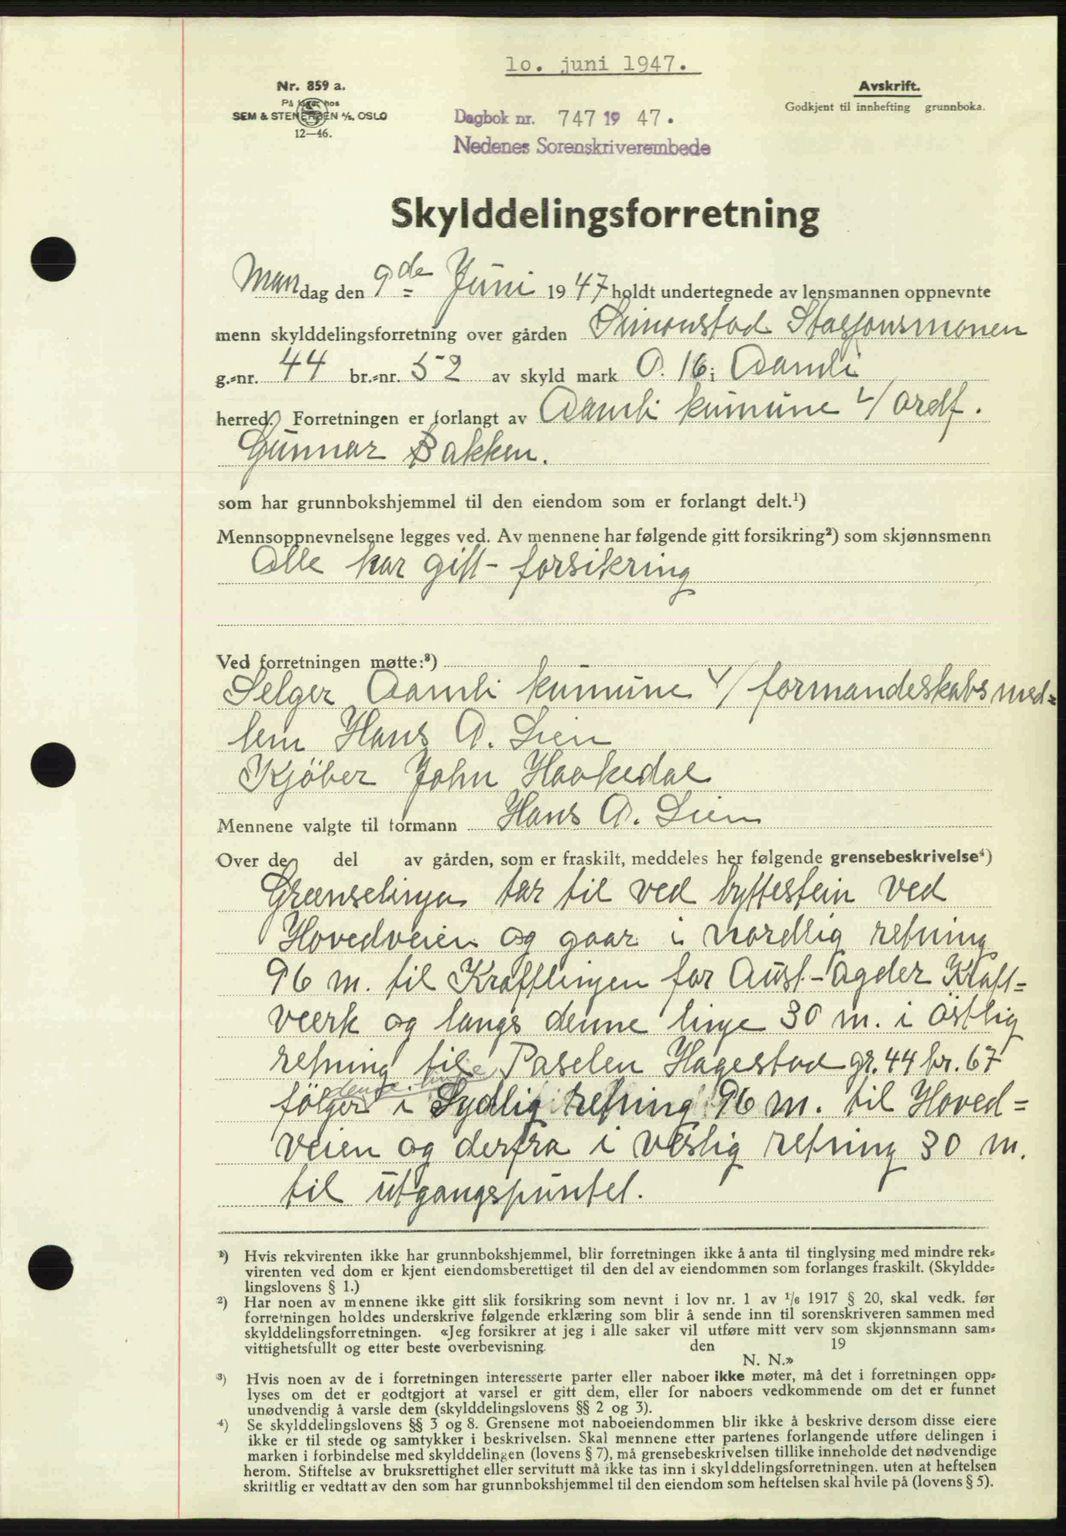 10. juni 1947.
Nr. 859 a.
På lager hos
SEM & STENERSEN A/S, OSLO
12—46.
Avskrift.
Godkjent til innhefting grunnboka.
Dagbok nr. 747 19 47.
Nedenes Sorenskriverembede
Skylddelingsforretning
Mandag den 9de Juni 1947 holdt undertegnede av lensmannen oppnevnte
menn skylddelingsforretning over gården Simonstad Stasjonsmonen
g.-nr. 44 br.-nr. 52 av skyld mark 0.16 i Aamli
herred. Forretningen er forlangt av Aamli kumune v/ ordf.
Gunnar Bakken.
som har grunnbokshjemmel til den eiendom som er forlangt delt.¹)
Mennsoppnevnelsene legges ved. Av mennene har følgende gitt forsikring²) som skjønnsmenn
Alle har gitt forsikring
Ved forretningen møtte:³)
Selger Aamli kumune v/ formandeskabsmed-
lem Hans A. Lien
Kjöber John Haakedal
Mennene valgte til formann Hans A. Lien
Over de del av gården, som er fraskilt, meddeles her følgende grensebeskrivelse⁴)
Grænselinjen tar til ved byttestein ved
Hovedveien og gaar i nordlig retning
96 m. til Kraftlinjen for Aust-Agder Kraft-
værk og langs denne linje 30 m. i östlig
retning til Paselen Hagestad gr. 44 br. 67
følger denne linje i Sydlig retning 96 m. til Hoved-
veien og derfra i vestlig retning 30 m.
til utgangspuntet.
¹) Hvis rekvirenten ikke har grunnbokshjemmel, blir forretningen ikke å anta til tinglysing med mindre rek-
virenten ved dom er kjent eiendomsberettiget til den del av eiendommen som forlanges fraskilt. (Skyldde-
lingslovens § 1.)
²) Har noen av mennene ikke gitt slik forsikring som nevnt i lov nr. 1 av ¹/₆ 1917 § 20, skal vedk. før
forretningen holdes underskrive følgende erklæring som blir å sende inn til sorenskriveren sammen med
skylddelingsforretningen. «Jeg forsikrer at jeg i alle saker vil utføre mitt verv som skjønnsmann sam-
vittighetsfullt og etter beste overbevisning. den 19
N. N.»
³) Hvis noen av de i forretningen interesserte parter eller naboer ikke møter, må det i forretningen opp-
lyses om det er godtgjort at varsel er gitt dem, eller for naboers vedkommende om det er funnet
unødvendig å varsle dem (skylddelingslovens §§ 2 og 3).
⁴) Se skylddelingslovens §§ 3 og 8. Grensene mot naboeiendommen blir ikke å beskrive dersom disse eiere
ikke er til stede og samtykker i beskrivelsen. Skal mennene etter partenes forlangende utføre delingen i
marken i forbindelse med skylddelingen (lovens § 7), må grensebeskrivelsen tillike inneholde det nødvendige
herom. Stiftelse av bruksrettighet eller servitutt må ikke tas inn i skylddelingsforretningen. uten at heftelsen
skriftlig er vedtatt av den som har grunnbokshjemmel til den eiendom som heftelsen skal hvile på (lovens § 5).